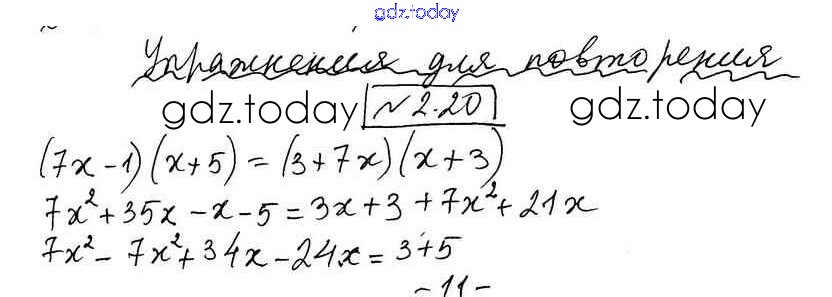 gdz.today
Упражнения для повторения
gdz.today №2.20 gdz.today
(7x-1)(x+5)=(3+7x)(x+3)
7x²+35x-x-5=3x+3+7x²+21x
7x²-7x²+34x-24x=3+5
-11-